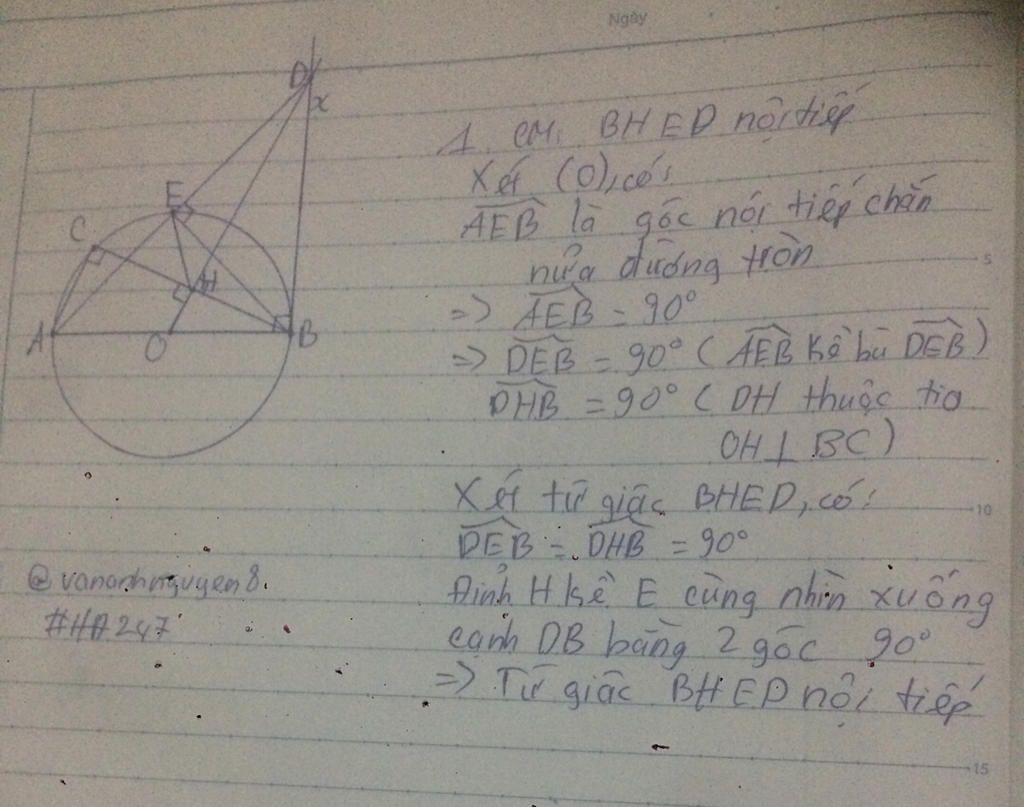 Ngày
D
x
E
C
H
A
O
B
1. CM: BHED nội tiếp
Xét (O), có:
AEB là góc nội tiếp chắn
nửa đường tròn
=> AEB = 90°
=> DEB = 90° (AEB kề bù DEB)
DHB = 90° (DH thuộc tia
OH ⊥ BC)
Xét tứ giác BHED, có:
10
DEB = DHB = 90°
Đỉnh H kề E cùng nhìn xuống
cạnh DB bằng 2 góc 90°
=> Tứ giác BHED nội tiếp
@vananhnguyen8.
#HĐ247
5
15